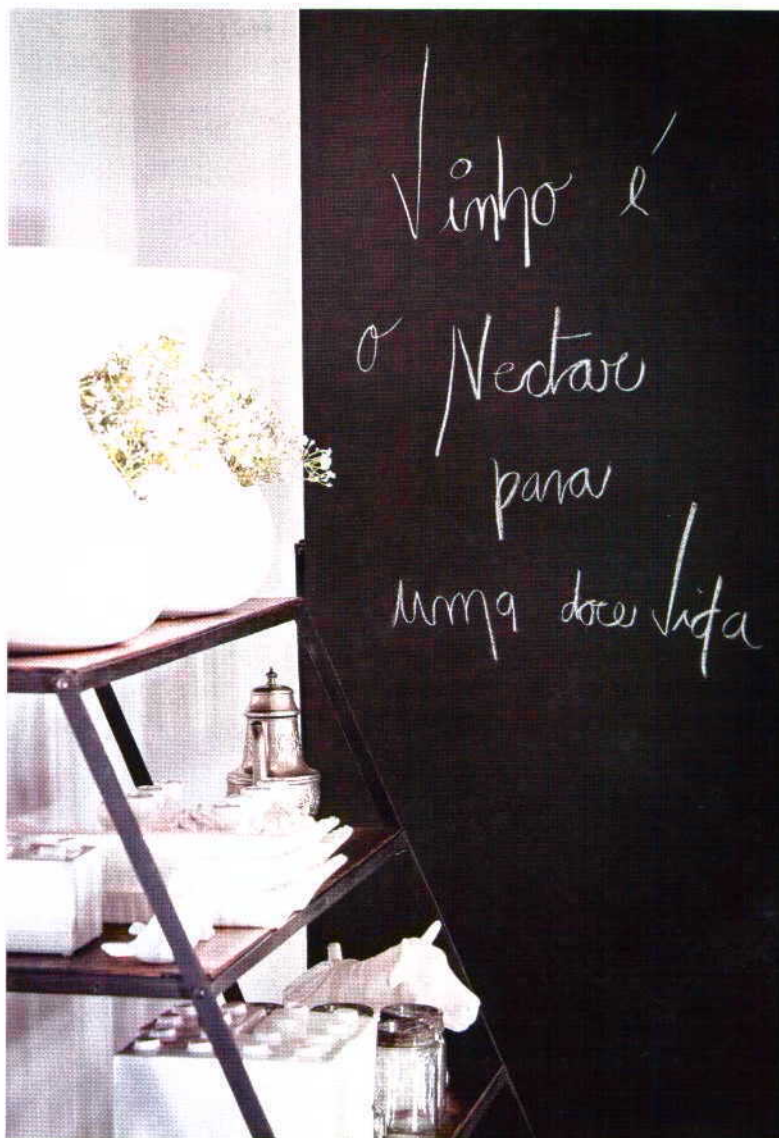 Vinho é
o Nectar
para
uma doce Vida